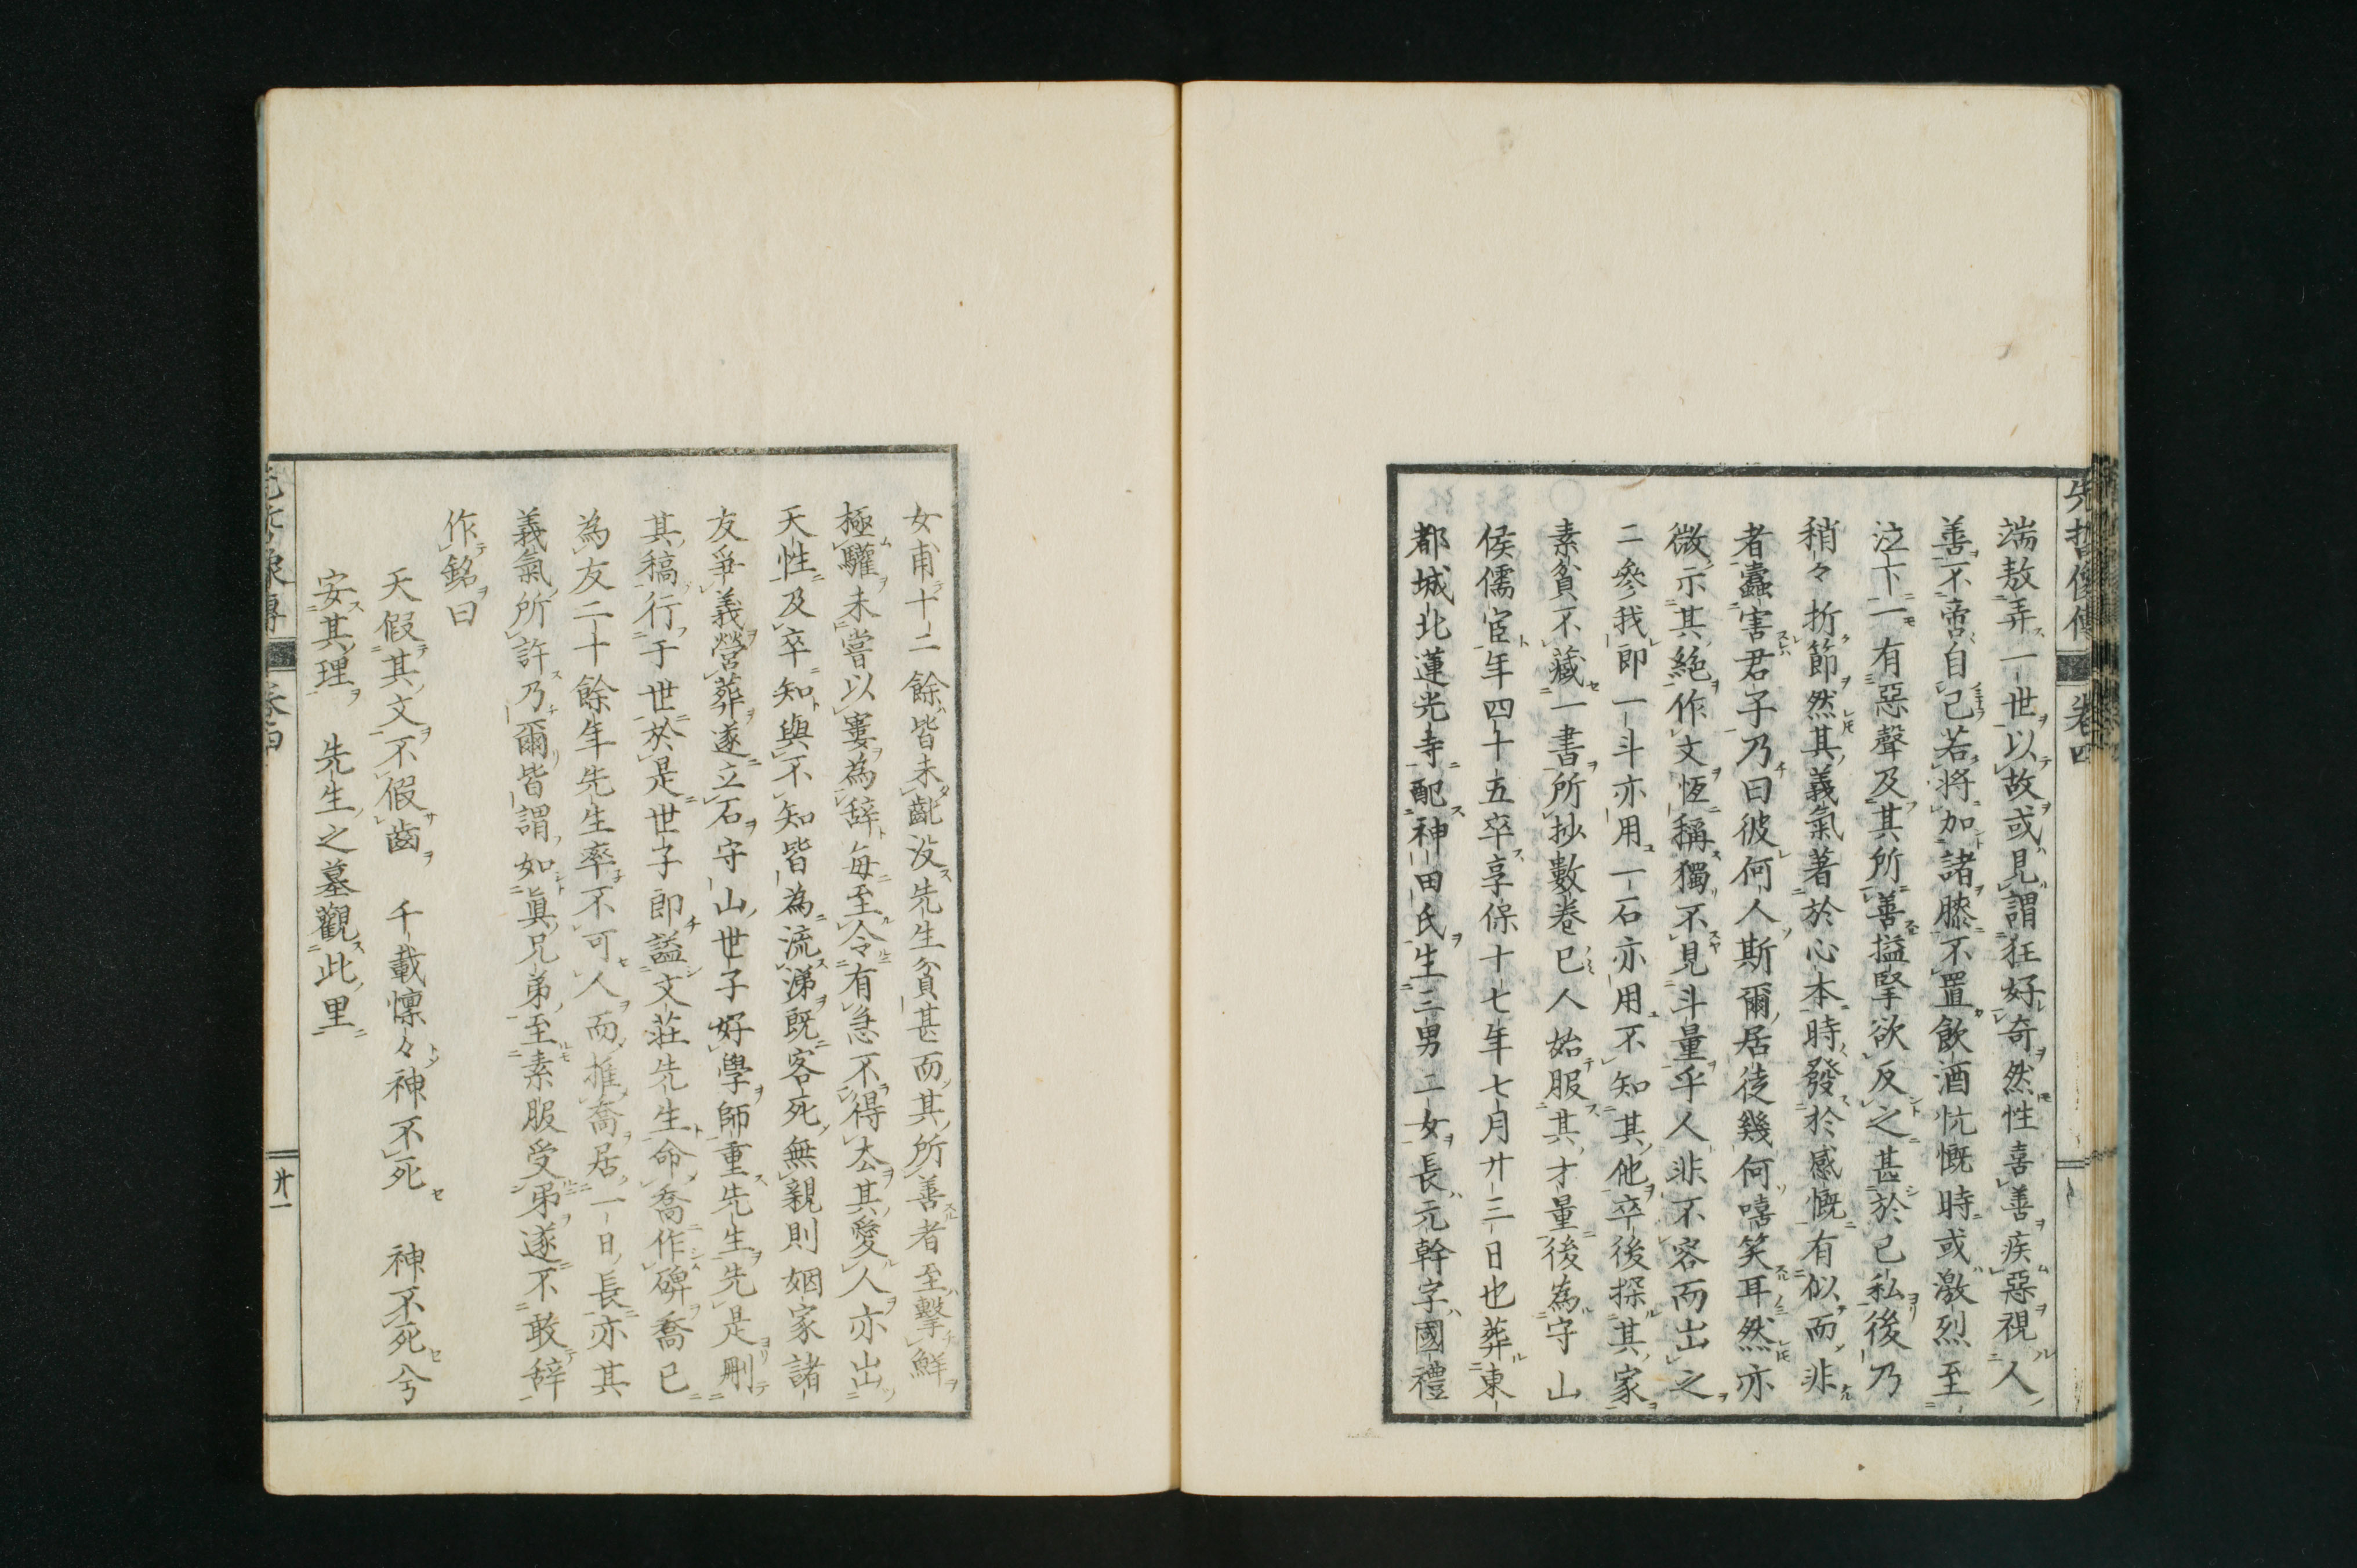 先哲像傳 卷四
端敖弄一世以故或見謂狂好奇然性喜善疾惡視人
善不啻自己若將加諸膝不置飲酒忼慨時或激烈至
泣下一有惡聲及其所善搤掔欲反之甚於己私後乃
稍々折節然其義氣著於心本時發於感慨有似而非
者蠹害君子乃曰彼何人斯爾居徒幾何嘻笑耳然亦
微示其絶作文恆稱獨不見斗量乎人非不容而出之
二參我即一斗亦用一石亦用不知其他卒後探其家
素貧不藏一書所抄數卷已人始服其才量後為守山
侯儒宦年四十五卒享保十七年七月廿三日也葬東
都城北蓮光寺配神田氏生三男二女長元幹字國禮
女甫十二餘皆未齔沒先生貧甚而其所善者至擊鮮
極驩未嘗以寠為辞每至令有急不得去其愛人亦出
天性及卒知與不知皆為流涕既客死無親則姻家諸
友爭義營葬遂立石守山世子好學師重先生先是刪
其稿行于世於是世子即謚文莊先生命喬作碑喬已
為友二十餘年先生率不可人而推喬居一日長亦其
義氣所許乃爾皆謂如眞兄弟至素服受弔遂不敢辞
作銘曰
天假其文不假齒 千載懍々神不死 神不死兮
安其理 先生之墓觀此里
廿一